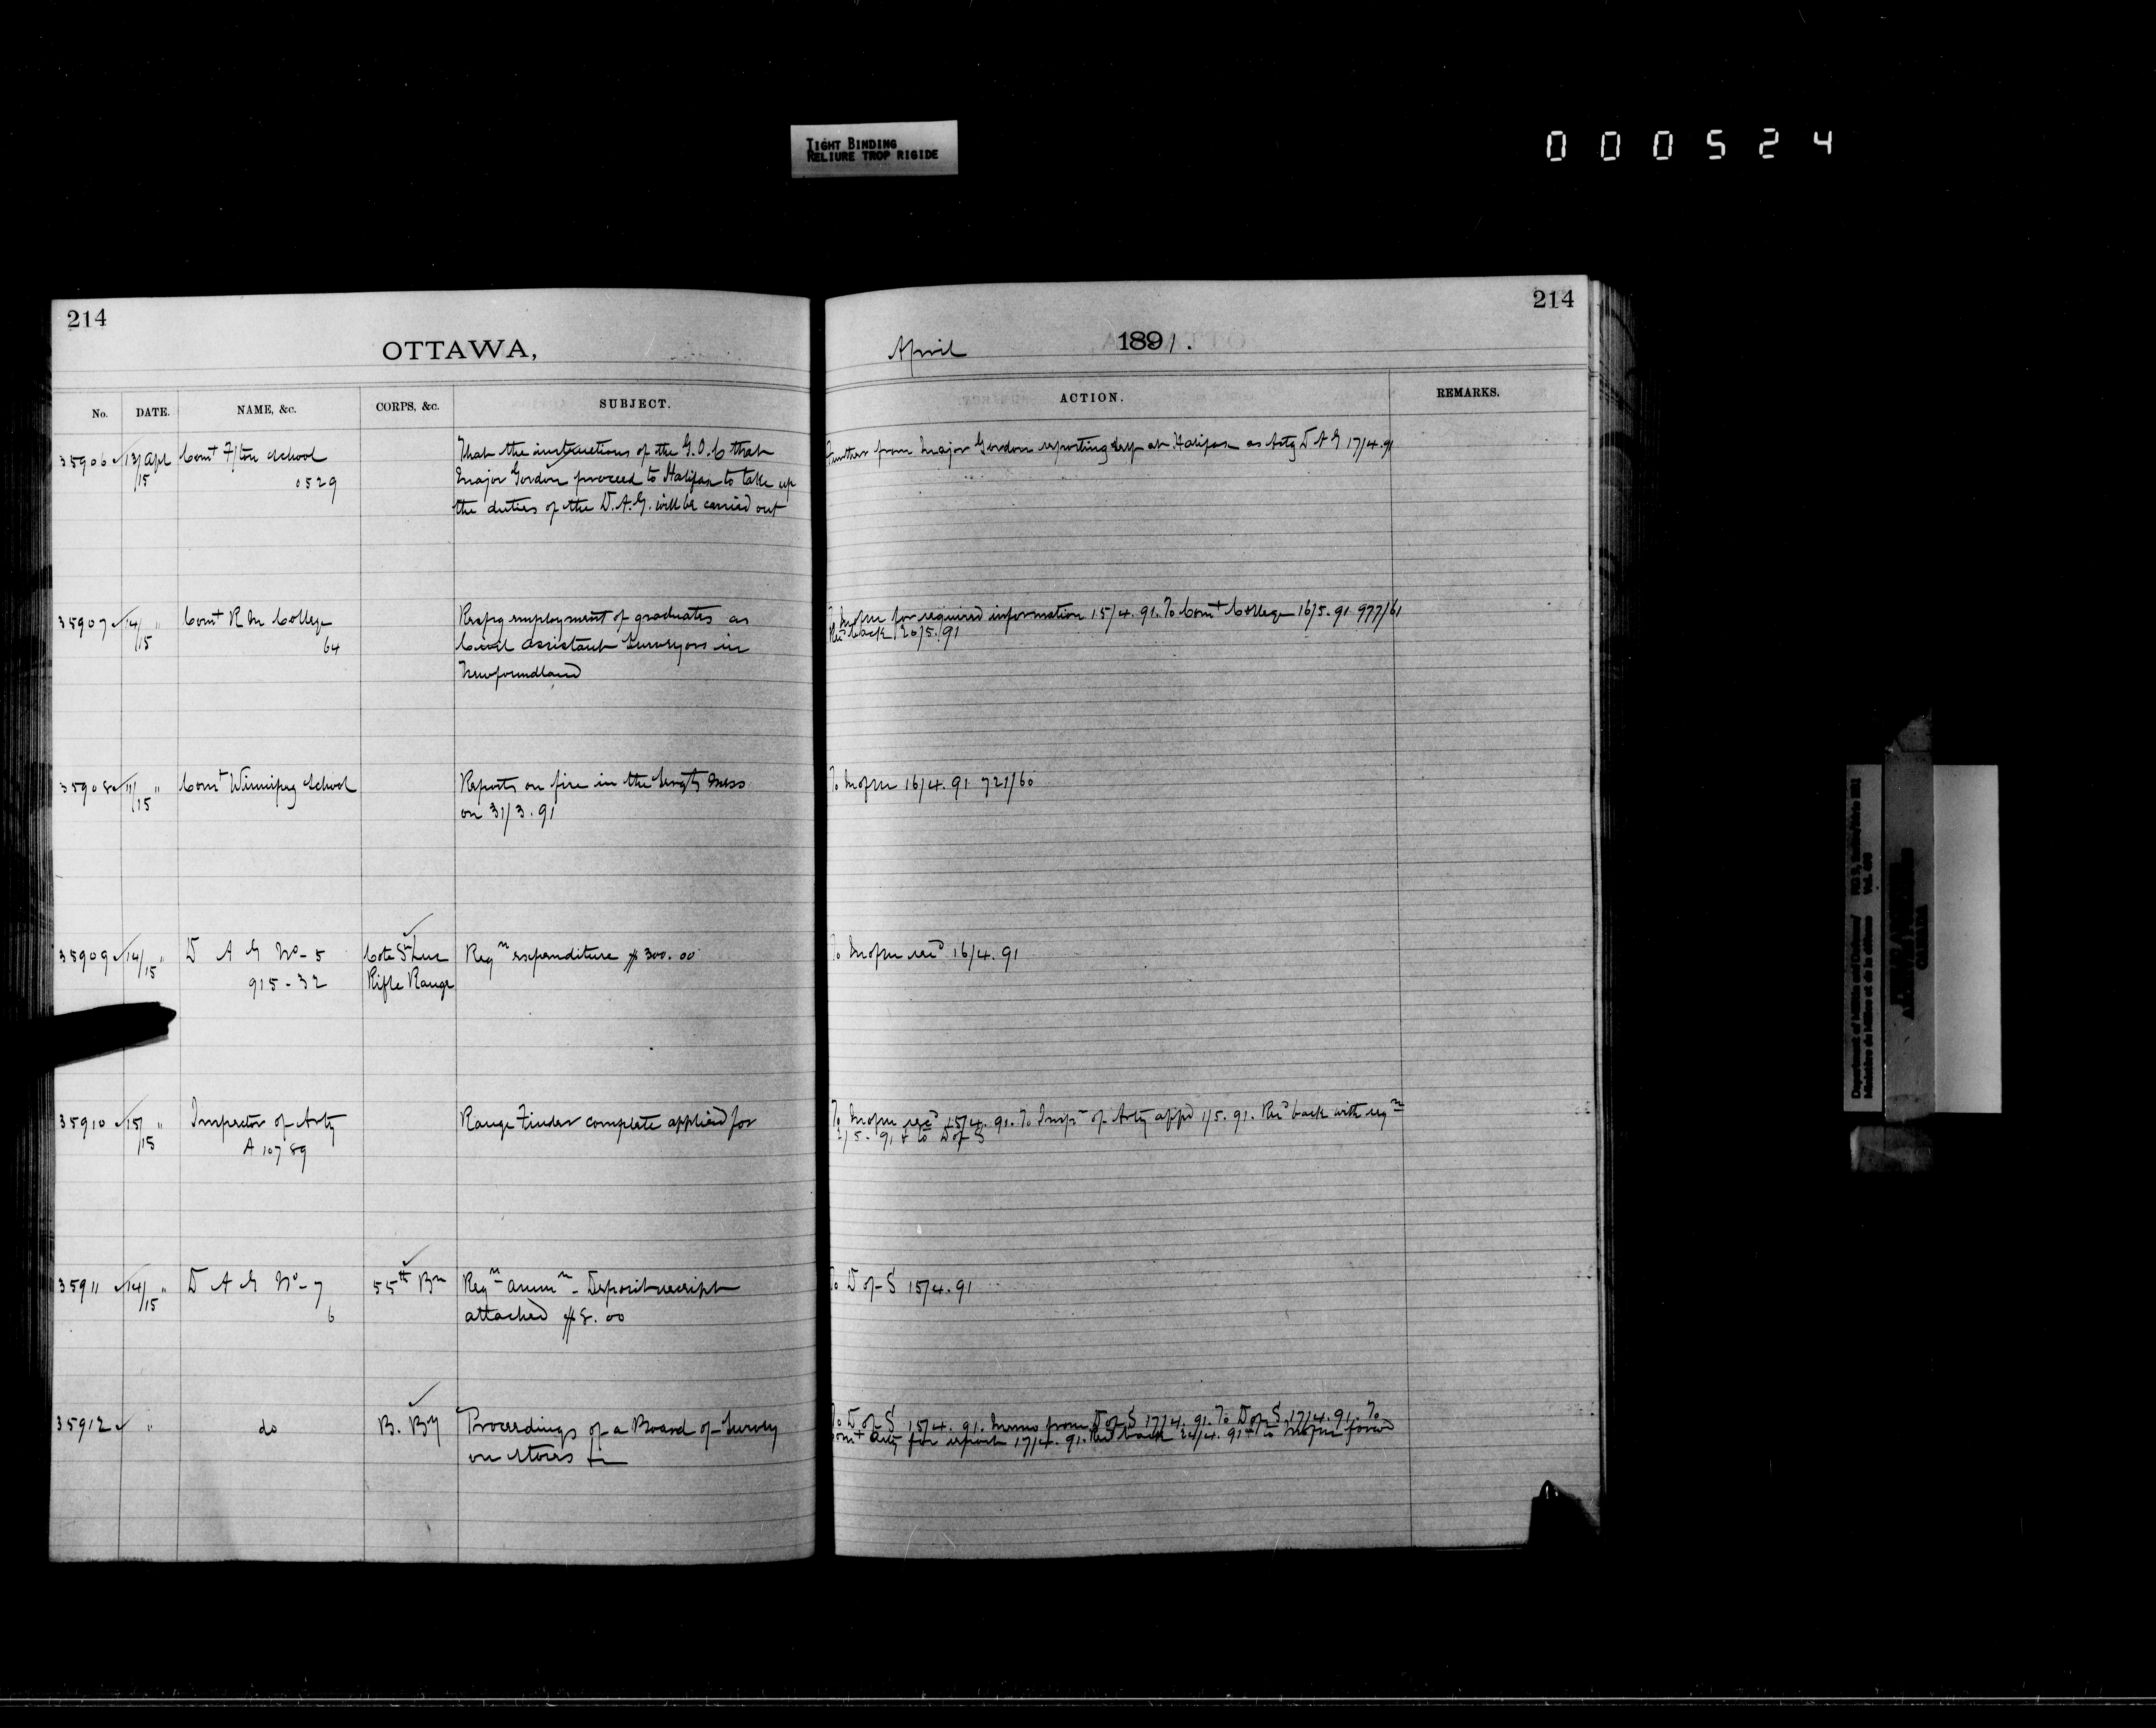 TIGHT BINDING
RELIURE TROP RIGIDE
000524
214
OTTAWA,
No. DATE. NAME, &c. CORPS, &c. SUBJECT.
35906 13/15 Apl Comt F/ton School That the instructions of the G.O.C that
0529 Major Gordon proceed to Halifax to take up
the duties of the D.A.G. will be carried out
35907 14/15 " Comt R M College Respg employment of graduates as
64 Civil Assistant Surveyors in
Newfoundland
35908 11/15 " Comt Winnipeg School Reports on fire in the Sergts Mess
on 31/3.91
35909 14/15 " D A G No-5 Cote St Luc Reqn expenditure $300.00
915-32 Rifle Range
35910 15/15 " Inspector of Arty Range Finder complete applied for
A 10789
35911 14/15 " D A G No-7 55th Bn Reqn Ammn - Deposit receipt
6 attached $8.00
35912 " do B. By Proceedings of a Board of Survey
on Stores &c
214
April 1891.
ACTION. REMARKS.
Further from Major Gordon reporting at Halifax as Actg D A G 17/4.91
To for required information 15/4.91. To Comt College 16/5.91 977/61
Recd back 20/5.91
To 16/4.91 721/60
To 16/4.91
To 15/4.91. To Inspr of Arty appd 1/5.91. Recd back with reqn
2/5.91 & to D of S
To D of S 15/4.91
To D of S 15/4.91. Memo from D of S 17/4.91. To D of S 17/4.91. To
Comt for report 17/4.91. Recd back 24/4.91 & to
Department of Militia and Defence/
Ministère de la Milice et de la défense
Vol.